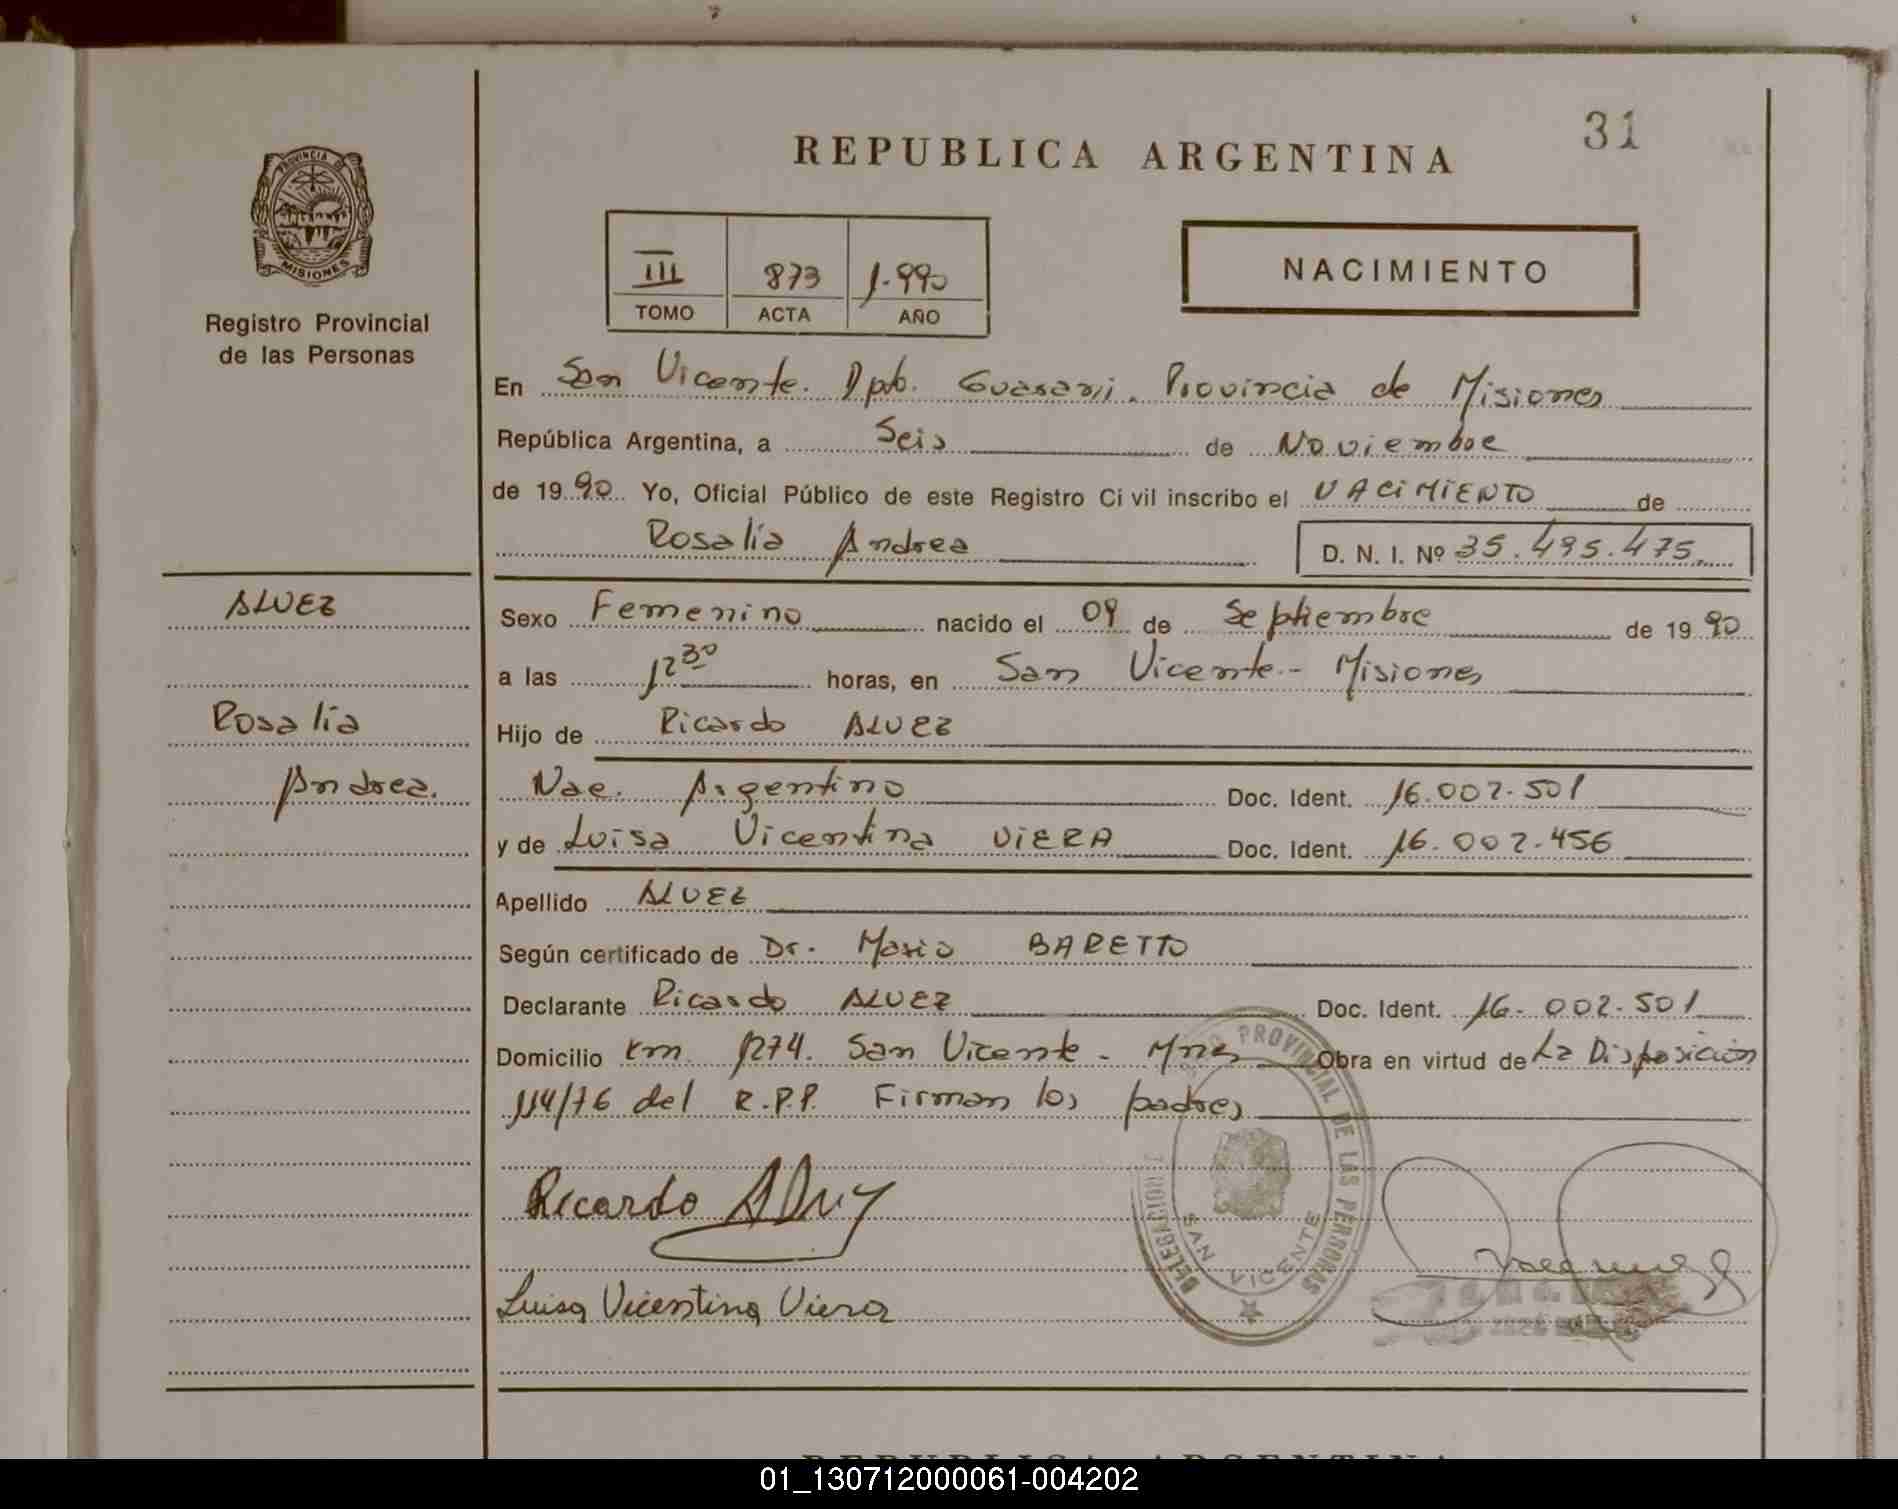 31
REPUBLICA ARGENTINA
PROVINCIA D
MISIONES
Registro Provincial
de las Personas
III 873 1.990
TOMO ACTA AÑO
NACIMIENTO
En San Vicente. Dpto. Guarani. Provincia de Misiones
República Argentina, a Seis de Noviembre
de 1990 Yo, Oficial Público de este Registro Civil inscribo el NACIMIENTO de
Rosalía Andrea D. N. I. Nº 35.495.475
ALVEZ
Rosalía
Andrea.
Sexo Femenino nacido el 09 de Septiembre de 1990
a las 12 30 horas, en San Vicente - Misiones
Hijo de Ricardo ALVEZ
Nac. Argentino Doc. Ident. 16.002.501
y de Luisa Vicentina VIERA Doc. Ident. 16.002.456
Apellido ALVEZ
Según certificado de Dr. Mario BARETTO
Declarante Ricardo ALVEZ Doc. Ident. 16.002.501
Domicilio Km. 1274. San Vicente - Mnes Obra en virtud de La Disposición
114/76 del R.P.P. Firman los padres
Ricardo Alvez
Luisa Vicentina Viera
PROVINCIAL DE LAS PERSONAS
DELEGACION
SAN VICENTE
REPUBLICA ARGENTINA
01_130712000061-004202